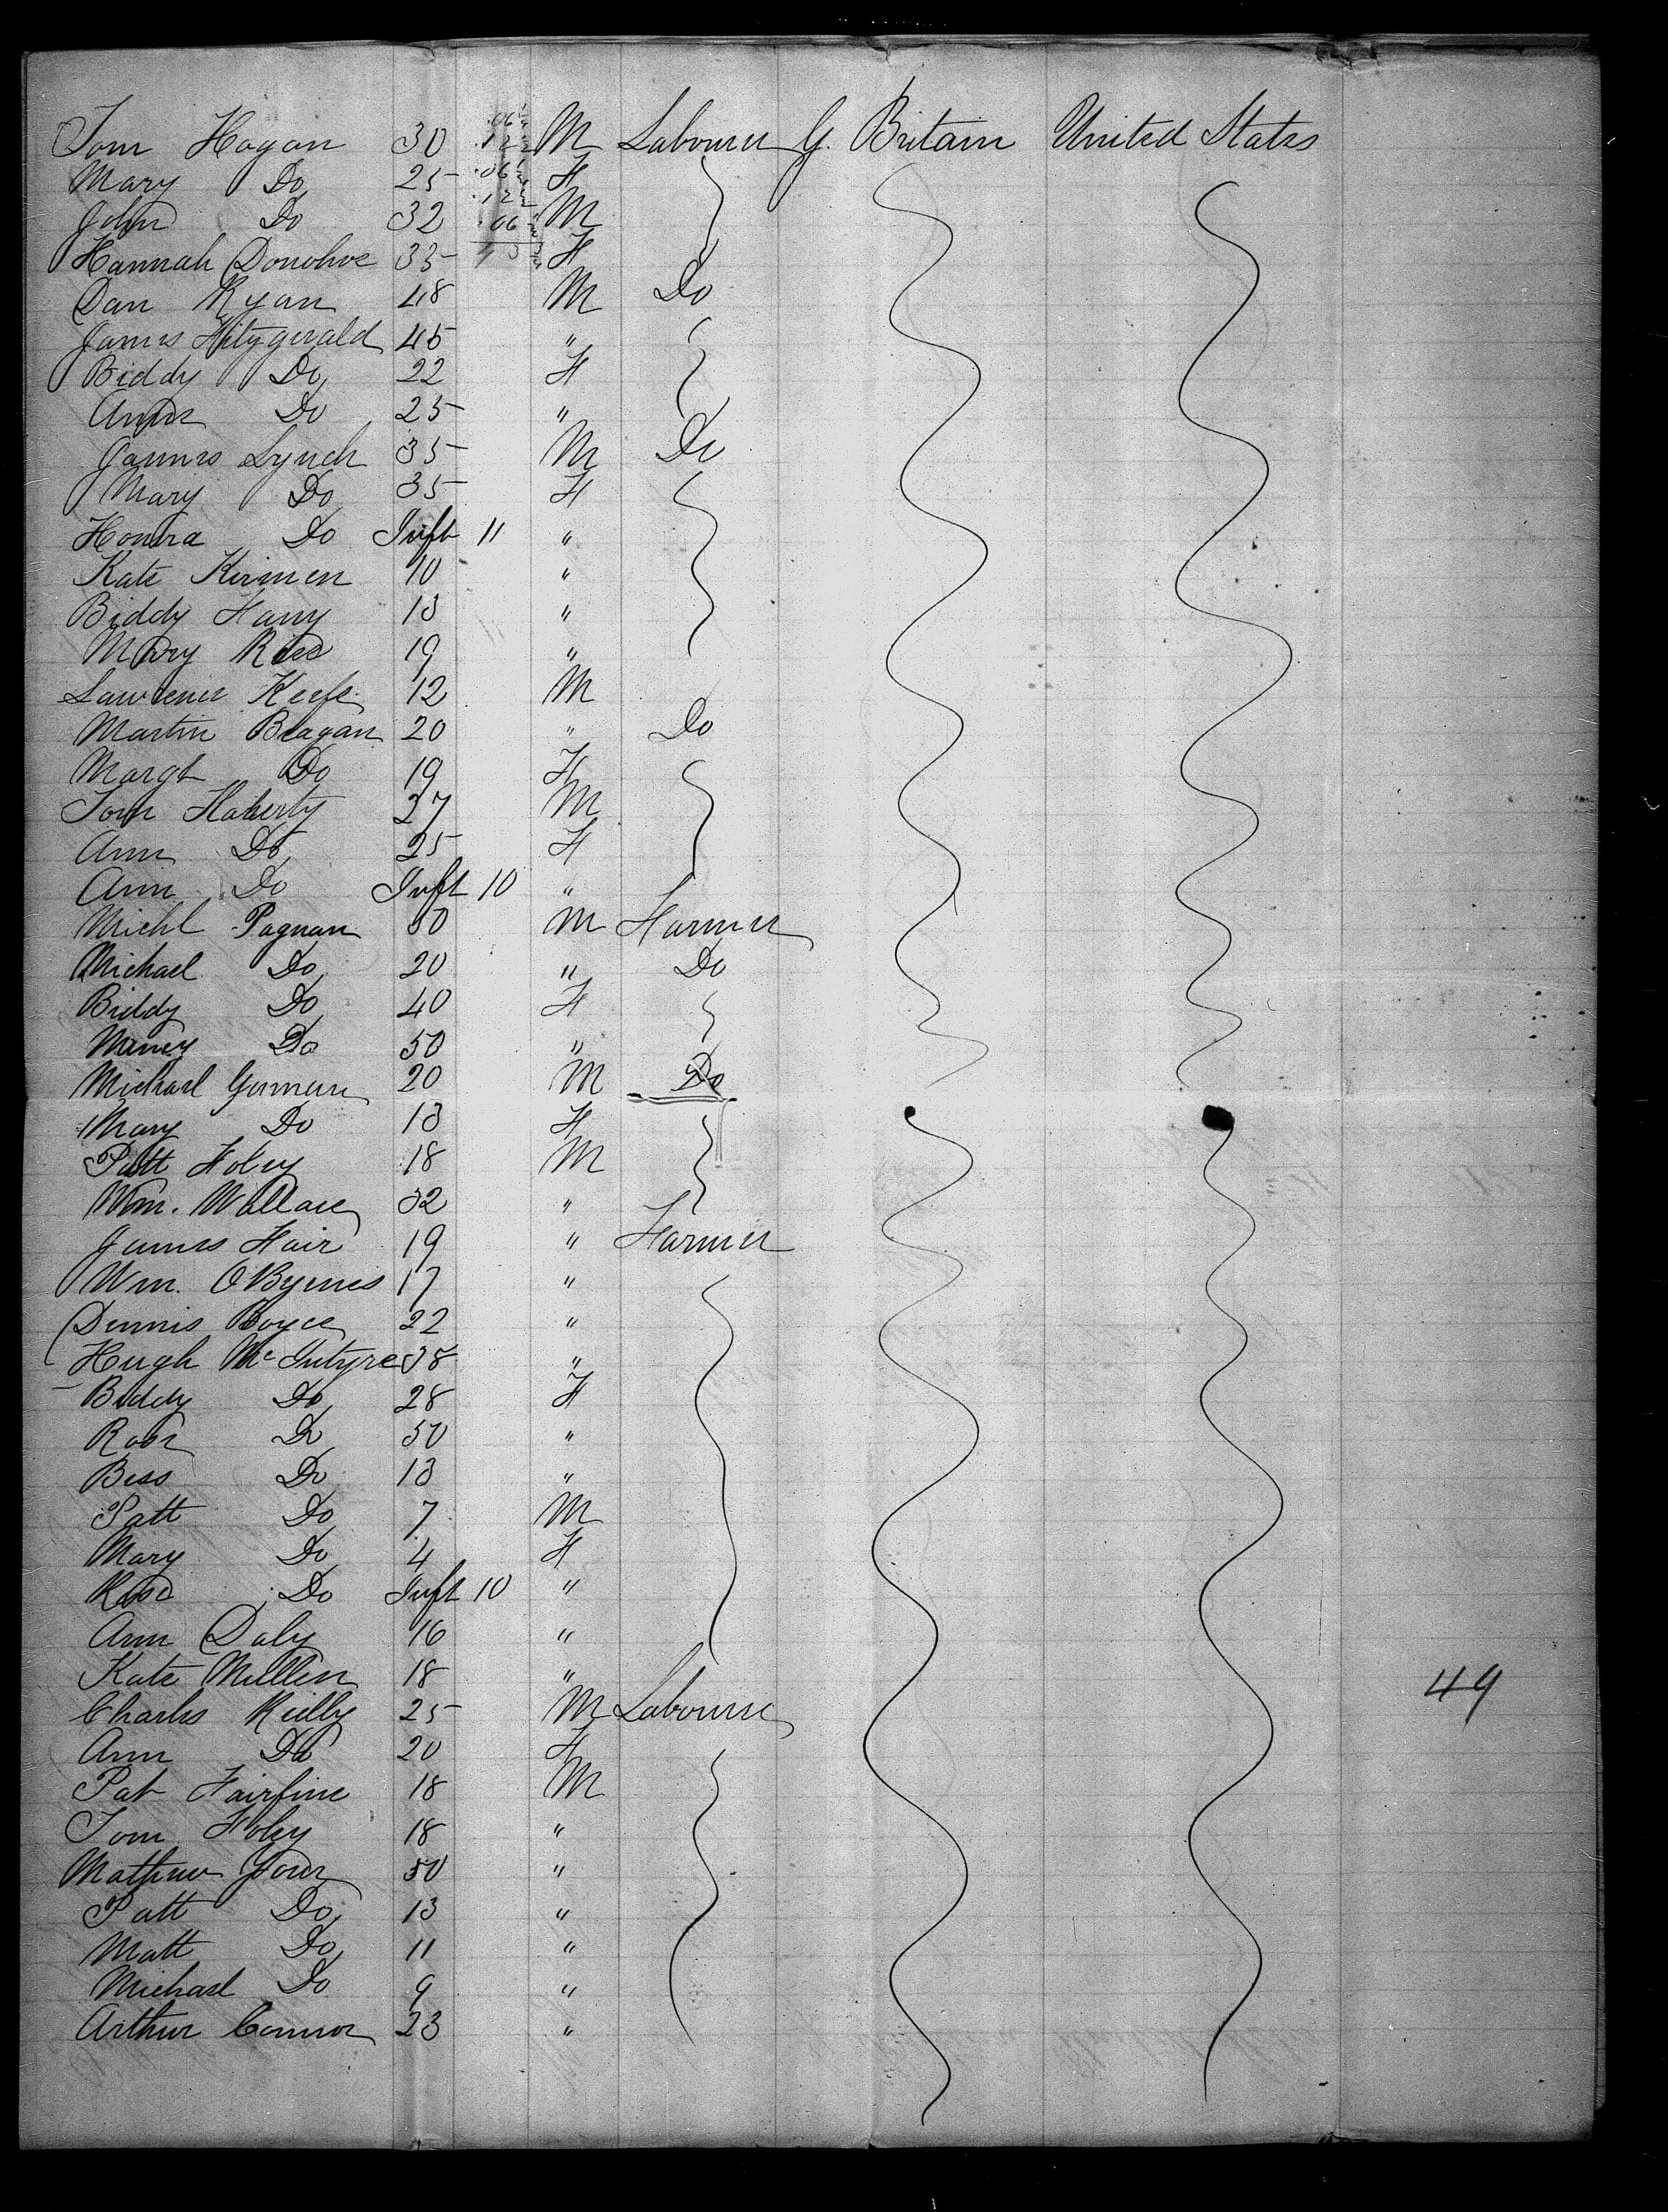 Tom Hagan 30 M Labourer G. Britain United States
Mary Do 25 F
John Do 32 M
Hannah Donohoe 35 F
Dan Ryan 48 M Do
James Fitzgerald 45 "
Biddy Do 22 F
Anne Do 25 "
James Lynch 35 M Do
Mary Do 35 F
Honora Do Inft 11 "
Kate Kirmen 10 "
Biddy Harry 13 "
Mary Rice 19 "
Lawrence Keefe 12 M
Martin Bragan 20 " Do
Margt Do 19 F
Tom Flaherty 27 M
Ann Do 25 F
Ann Do Inft 10 "
Michl Pagnan 50 M Farmer
Michael Do 20 " Do
Biddy Do 40 F
Nancy Do 50 "
Michael Gorman 20 M Do
Mary Do 13 F
Patt Foley 18 M
Wm. Wallace 32 "
James Hair 19 " Farmer
Wm. O Byrnes 17 "
Dennis Boyce 22 "
Hugh McIntyre 38 "
Biddy Do 28 F
Rose Do 50 "
Bess Do 13 "
Patt Do 7 M
Mary Do 4 F
Rose Do Inft 10 "
Ann Daly 16 "
Kate Millen 18 "
49
Charles Reilly 25 M Labourer
Ann Do 20 F
Pat Fairfine 18 M
Tom Foley 18 "
Mathew 50 "
Patt Do 13 "
Matt Do 11 "
Michael Do 9 "
Arthur Connor 23 "